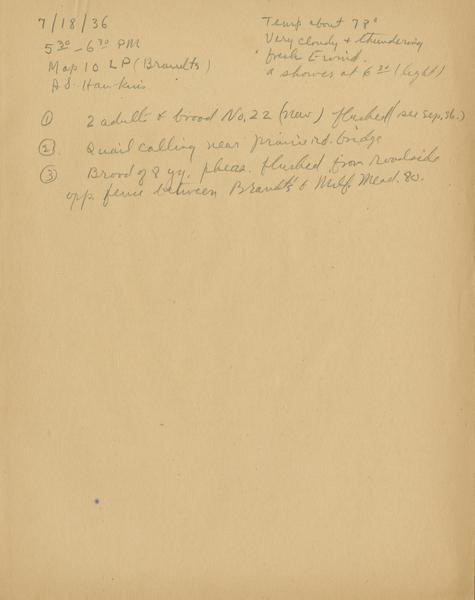 7/18/36
5³⁰ - 6³⁰ PM
Map 10 LP (Brandts)
A.S. Hawkins
Temp about 78°
Very cloudy & thundering
fresh E wind.
a shower at 6²⁰ (light)
① 2 adults & brood No. 22 (new) flushed (see sep. sh.)
② Quail calling near prairie rd. bridge
③ Brood of 8 yg. pheas. flushed from roadside
opp. fence between Brandt's & Milf. Mead. 80.